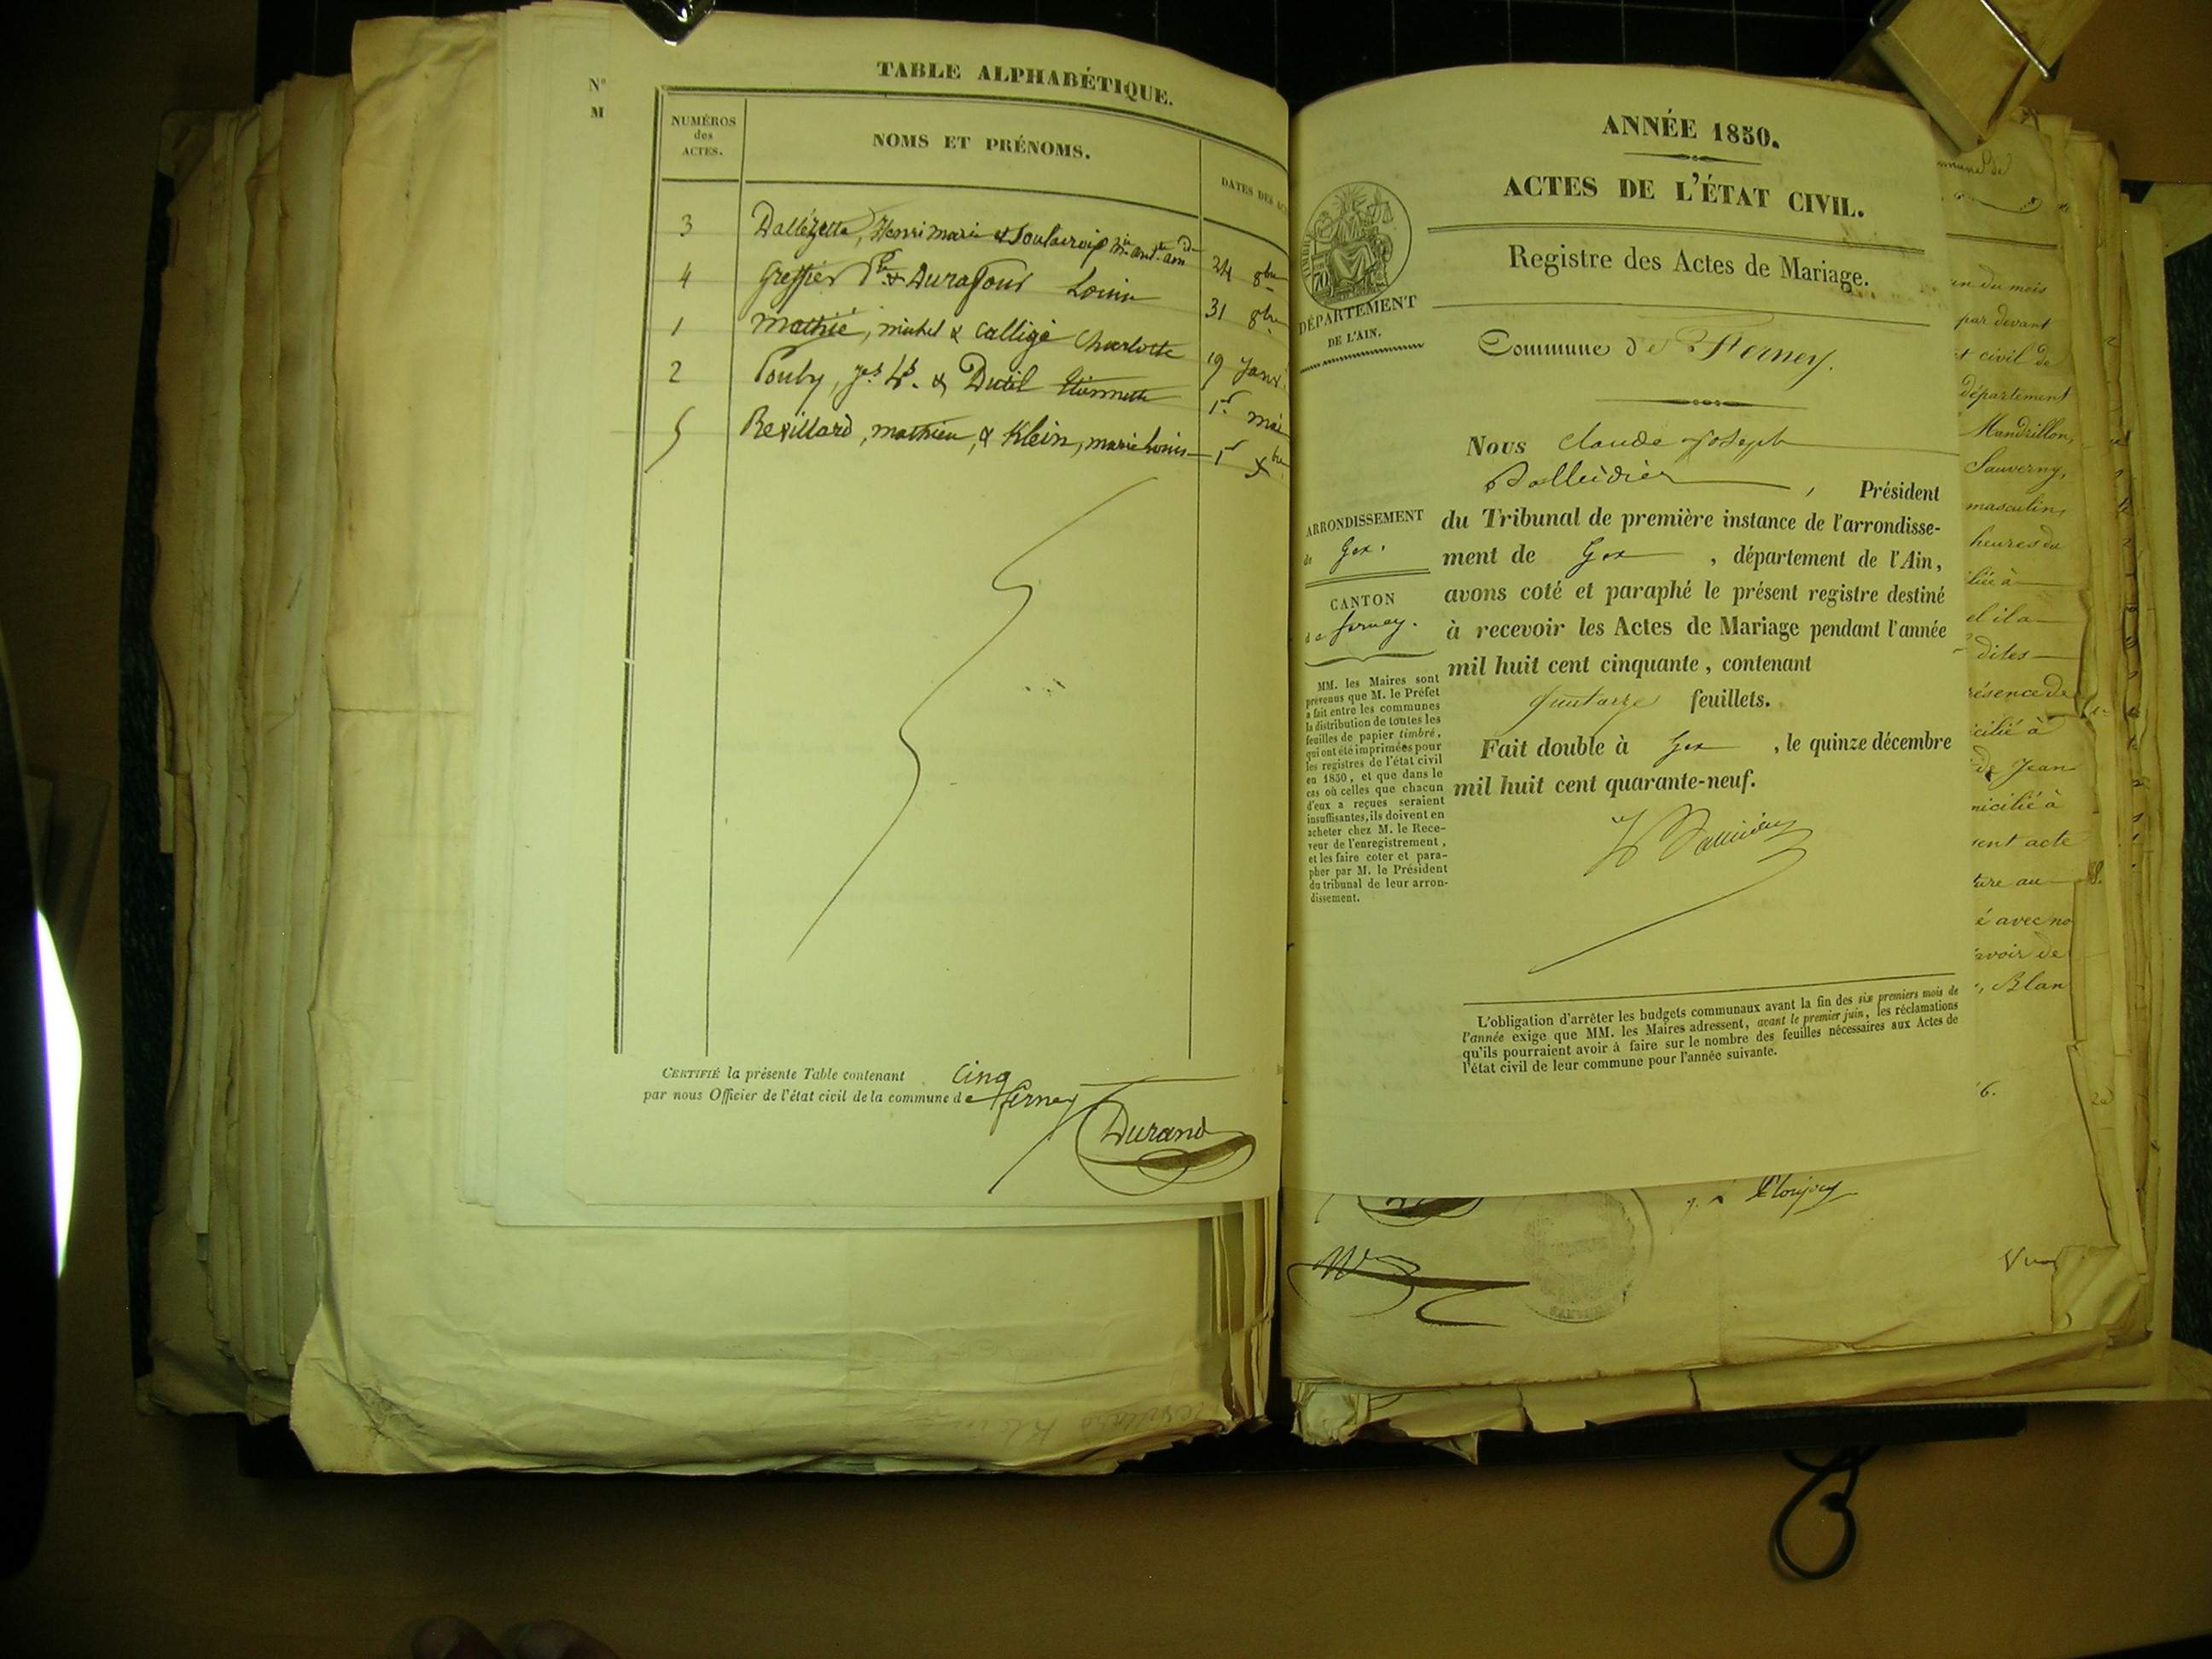 N°
M
TABLE ALPHABÉTIQUE.
NUMÉROS
des
ACTES.
NOMS ET PRÉNOMS.
DATES DES AC
3 Dallézette, Henri marie & 24 8bre
4 Greffier & Durafour Louise 31 8bre
1 Mathié, michel & Calligé Charlotte 19 Janv.
2 Pouly, & Dutil Etiennette 1er mai
5 Revillard, mathieu, & Klein, marie Louise 1er Xbre
CERTIFIÉ la présente Table contenant cinq
par nous Officier de l'état civil de la commune de Ferney
Durand
ANNÉE 1850.
ACTES DE L'ÉTAT CIVIL.
Registre des Actes de Mariage.
DÉPARTEMENT
DE L'AIN.
Commune de Ferney.
Nous Claude Joseph
, Président
du Tribunal de première instance de l'arrondisse-
ment de Gex , département de l'Ain,
avons coté et paraphé le présent registre destiné
à recevoir les Actes de Mariage pendant l'année
mil huit cent cinquante, contenant
quatorze feuillets.
Fait double à Gex , le quinze décembre
mil huit cent quarante-neuf.
ARRONDISSEMENT
de Gex.
CANTON
de ferney.
MM. les Maires sont
prévenus que M. le Préfet
a fait entre les communes
la distribution de toutes les
feuilles de papier timbré,
qui ont été imprimées pour
les registres de l'état civil
en 1850, et que dans le
cas où celles que chacun
d'eux a reçues seraient
insuffisantes, ils doivent en
acheter chez M. le Rece-
veur de l'enregistrement,
et les faire coter et para-
pher par M. le Président
du tribunal de leur arron-
dissement.
L'obligation d'arrêter les budgets communaux avant la fin des six premiers mois de
l'année exige que MM. les Maires adressent, avant le premier juin, les réclamations
qu'ils pourraient avoir à faire sur le nombre des feuilles nécessaires aux Actes de
l'état civil de leur commune pour l'année suivante.
mmune de
un du mois
par devant
t civil de
département
Mandrillon,
Sauverny,
masculin,
heures du
liée à
el il a
dites
résence de
icilié à
de Jean
micilié à
sent acte
ture au
é avec no
avoir de
, Blan
6.